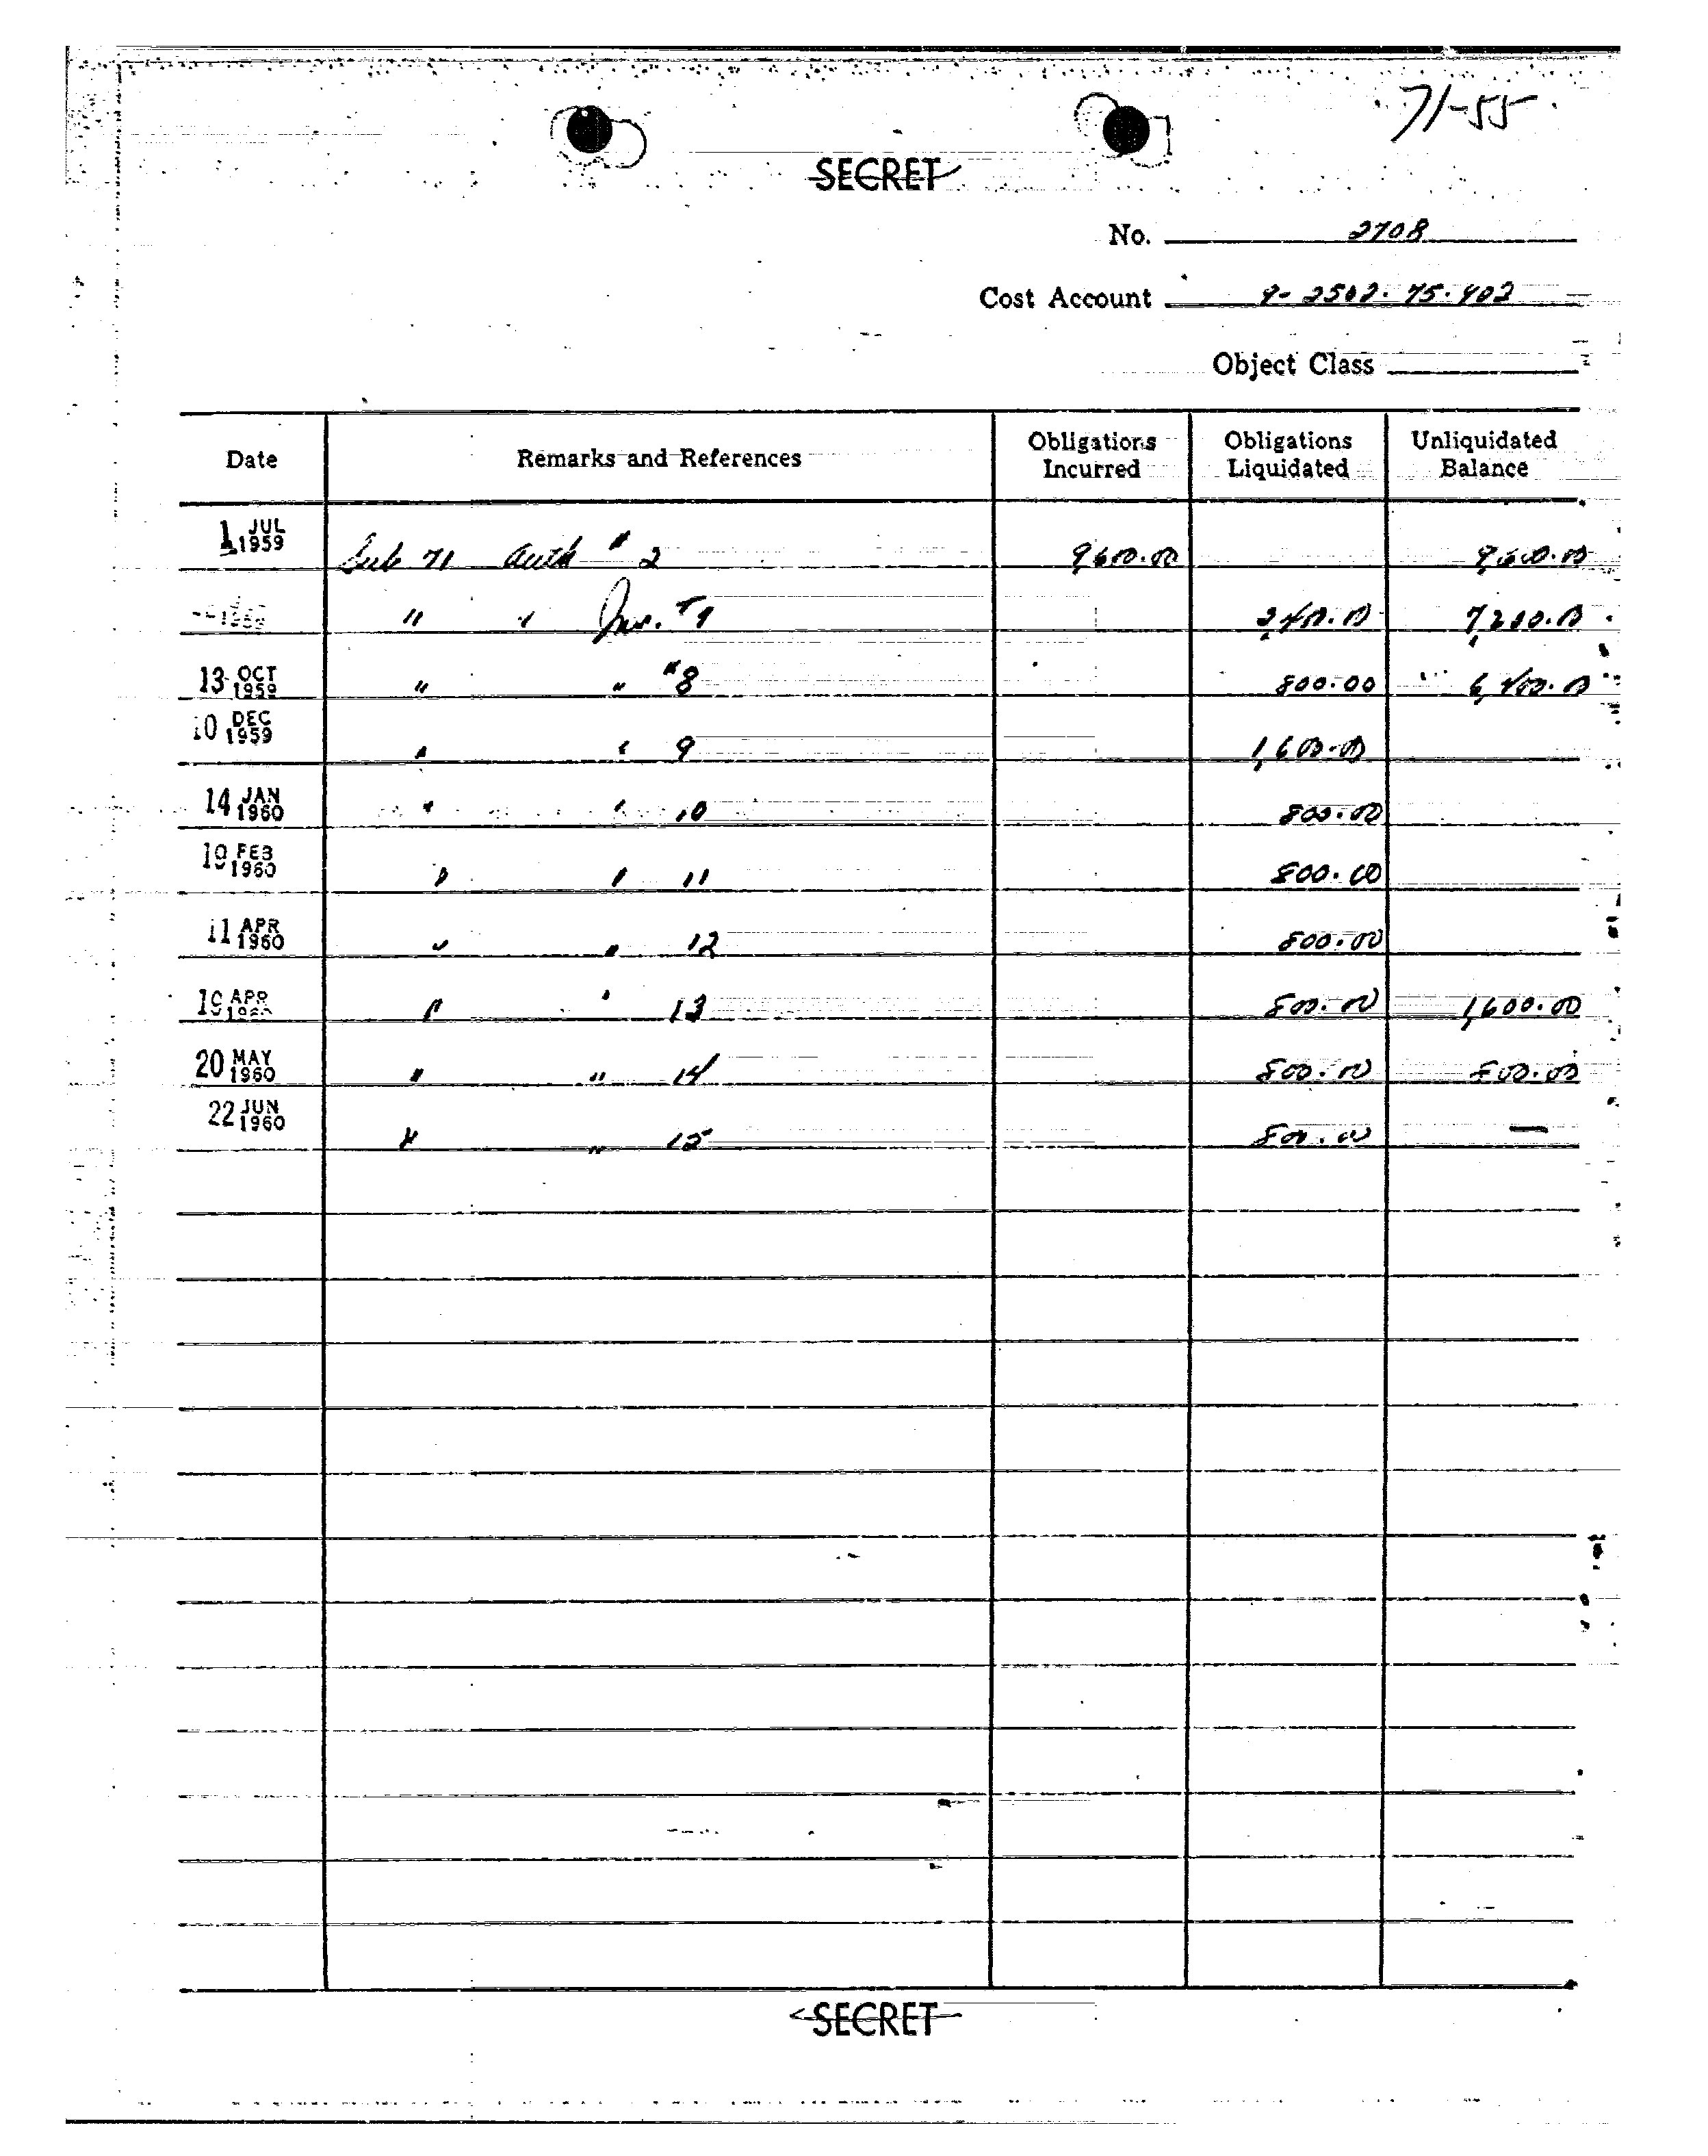 71-55
SECRET
No. 2708
Cost Account 9-2502.75.402
Object Class
Date Remarks and References Obligations Incurred Obligations Liquidated Unliquidated Balance
1 JUL 1959 Sub 71 Auth # 2 9,600.00 9,600.00
1959 " " Inv. #7 2,400.00 7,200.00
13 OCT 1959 " " #8 800.00 6,400.00
10 DEC 1959 " " 9 1,600.00
14 JAN 1960 " " 10 800.00
19 FEB 1960 " " 11 800.00
11 APR 1960 " " 12 800.00
19 APR 1960 " " 13 800.00 1,600.00
20 MAY 1960 " " 14 800.00 800.00
22 JUN 1960 " " 15 800.00 —
SECRET